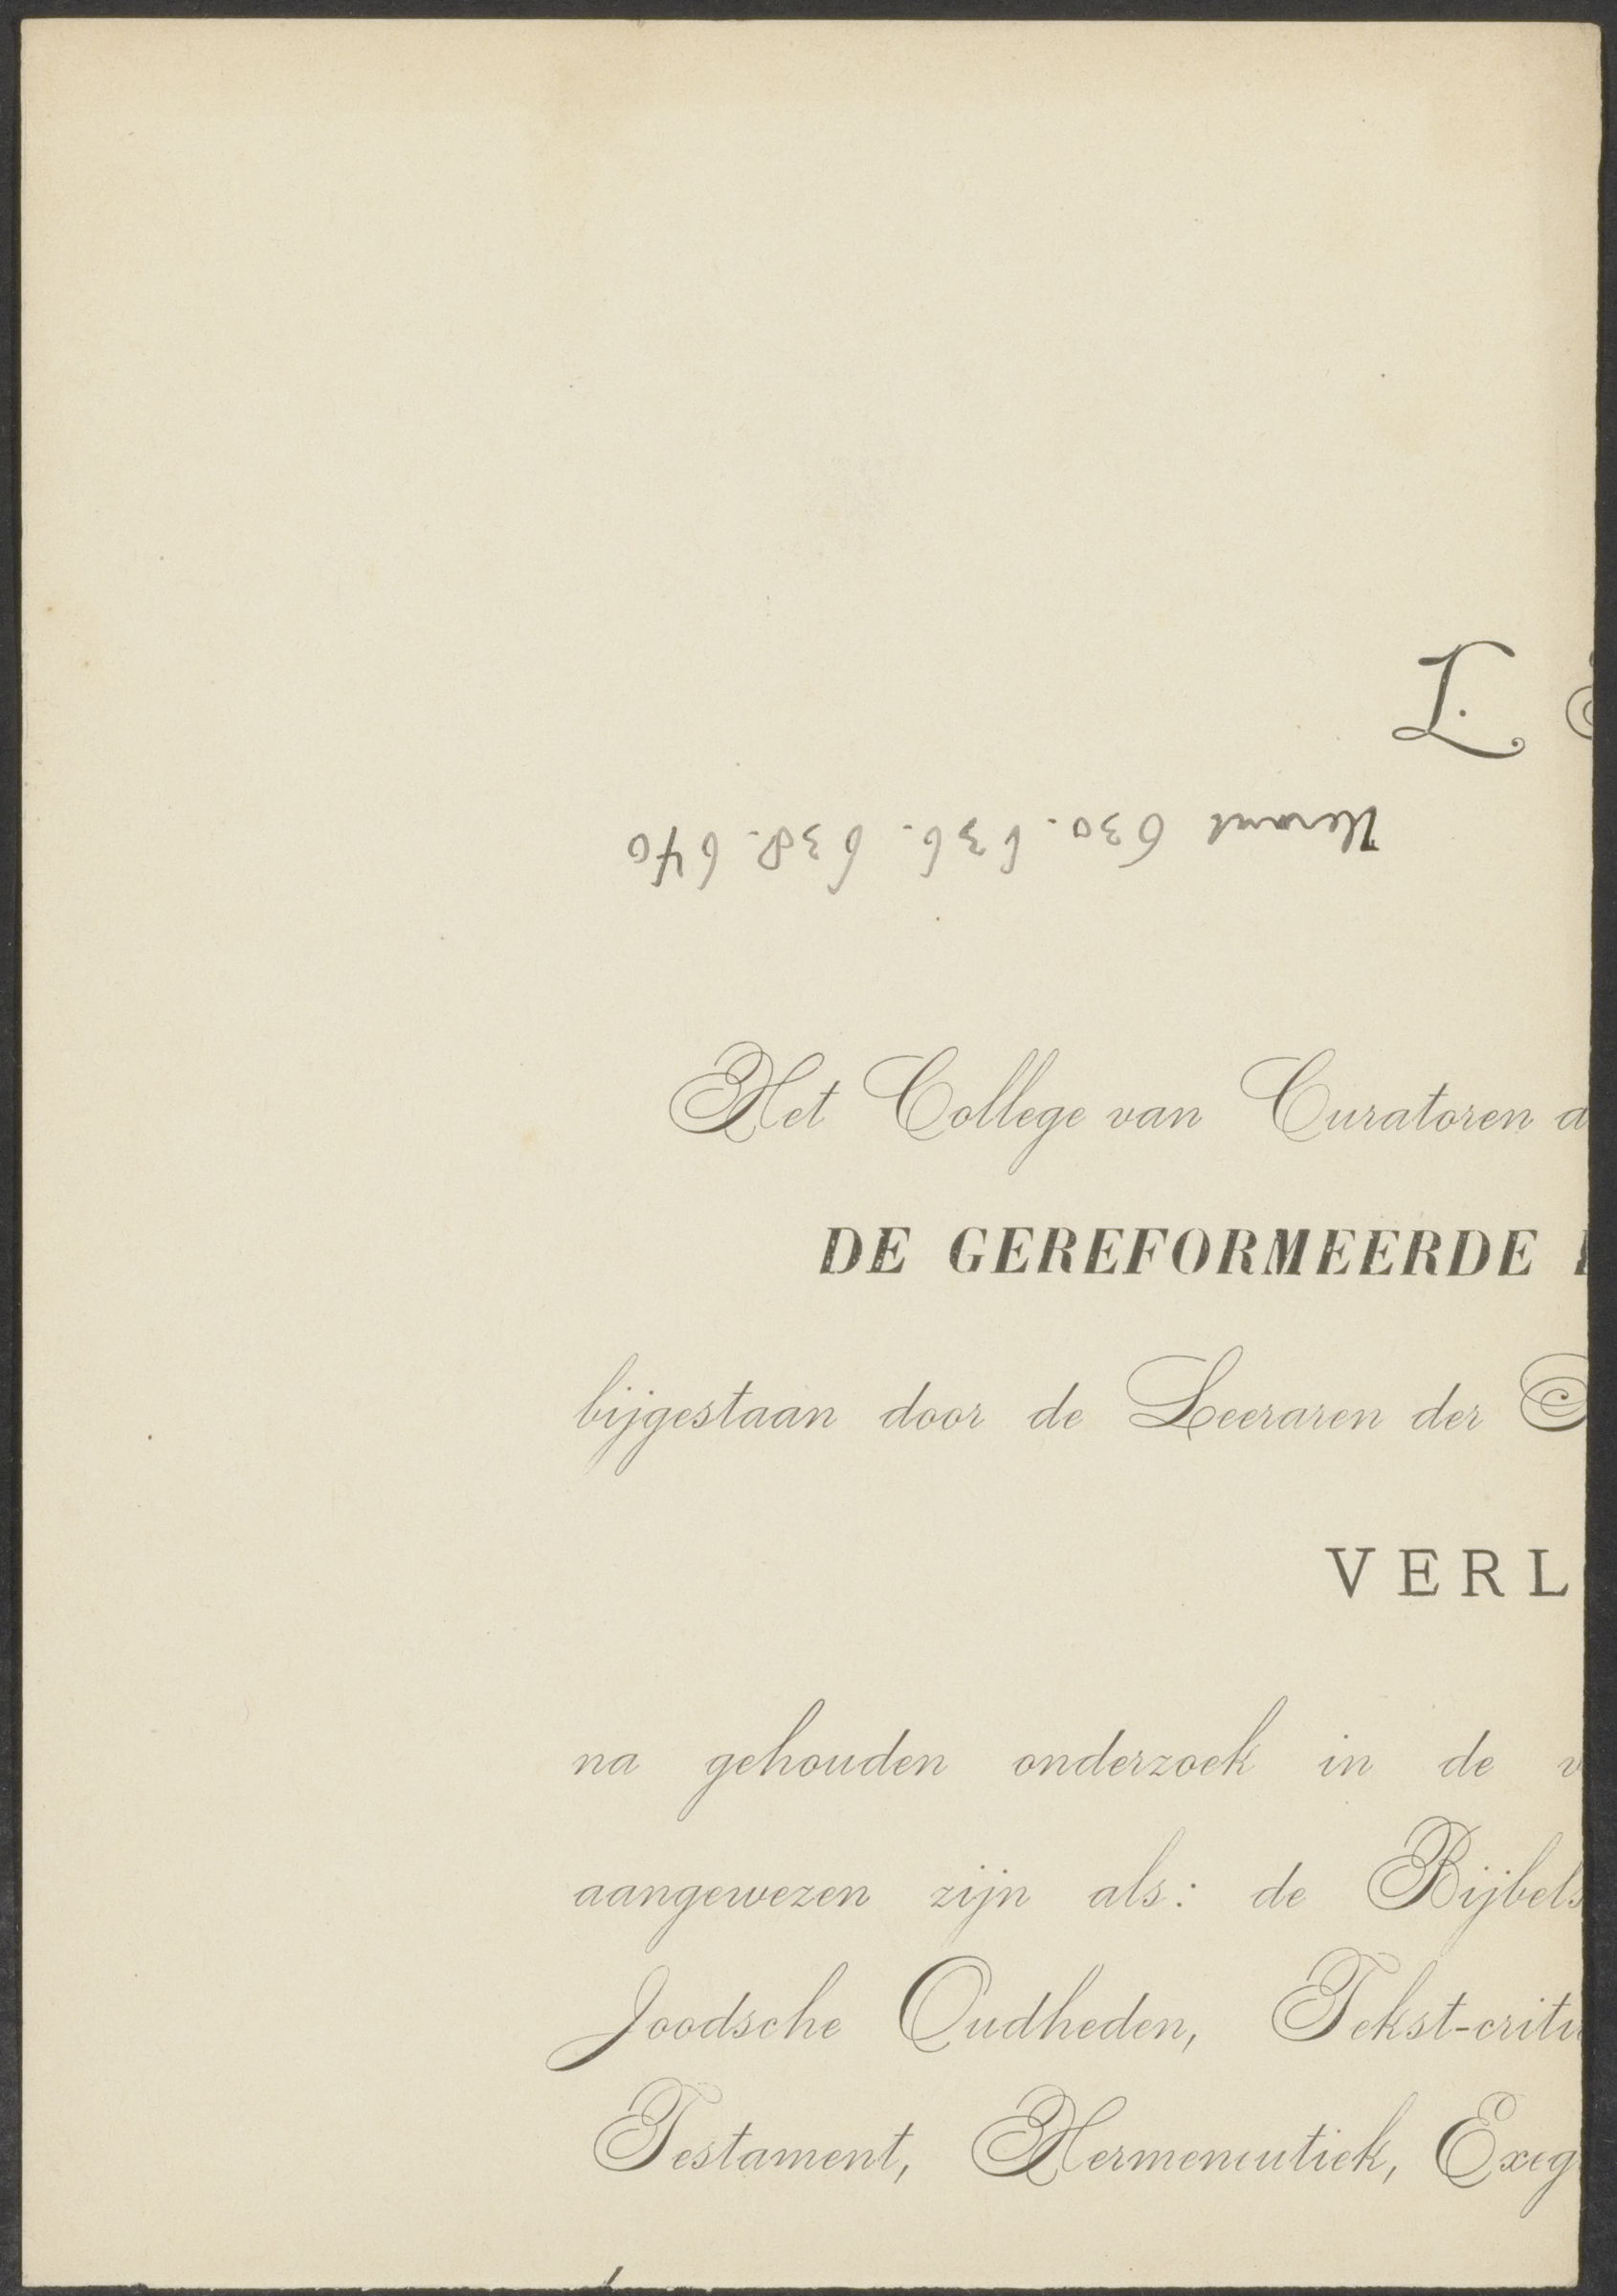 L.
Heraut 630. 636. 638. 640
Het College van Curatoren
DE GEREFORMEERDE
bijgestaan door de Leeraren der
VERL
na gehouden onderzoek in de v
aangewezen zijn als: de Bijbels
Joodsche Oudheden, Tekst-criti
Testament, Hermeneutiek, Exeg